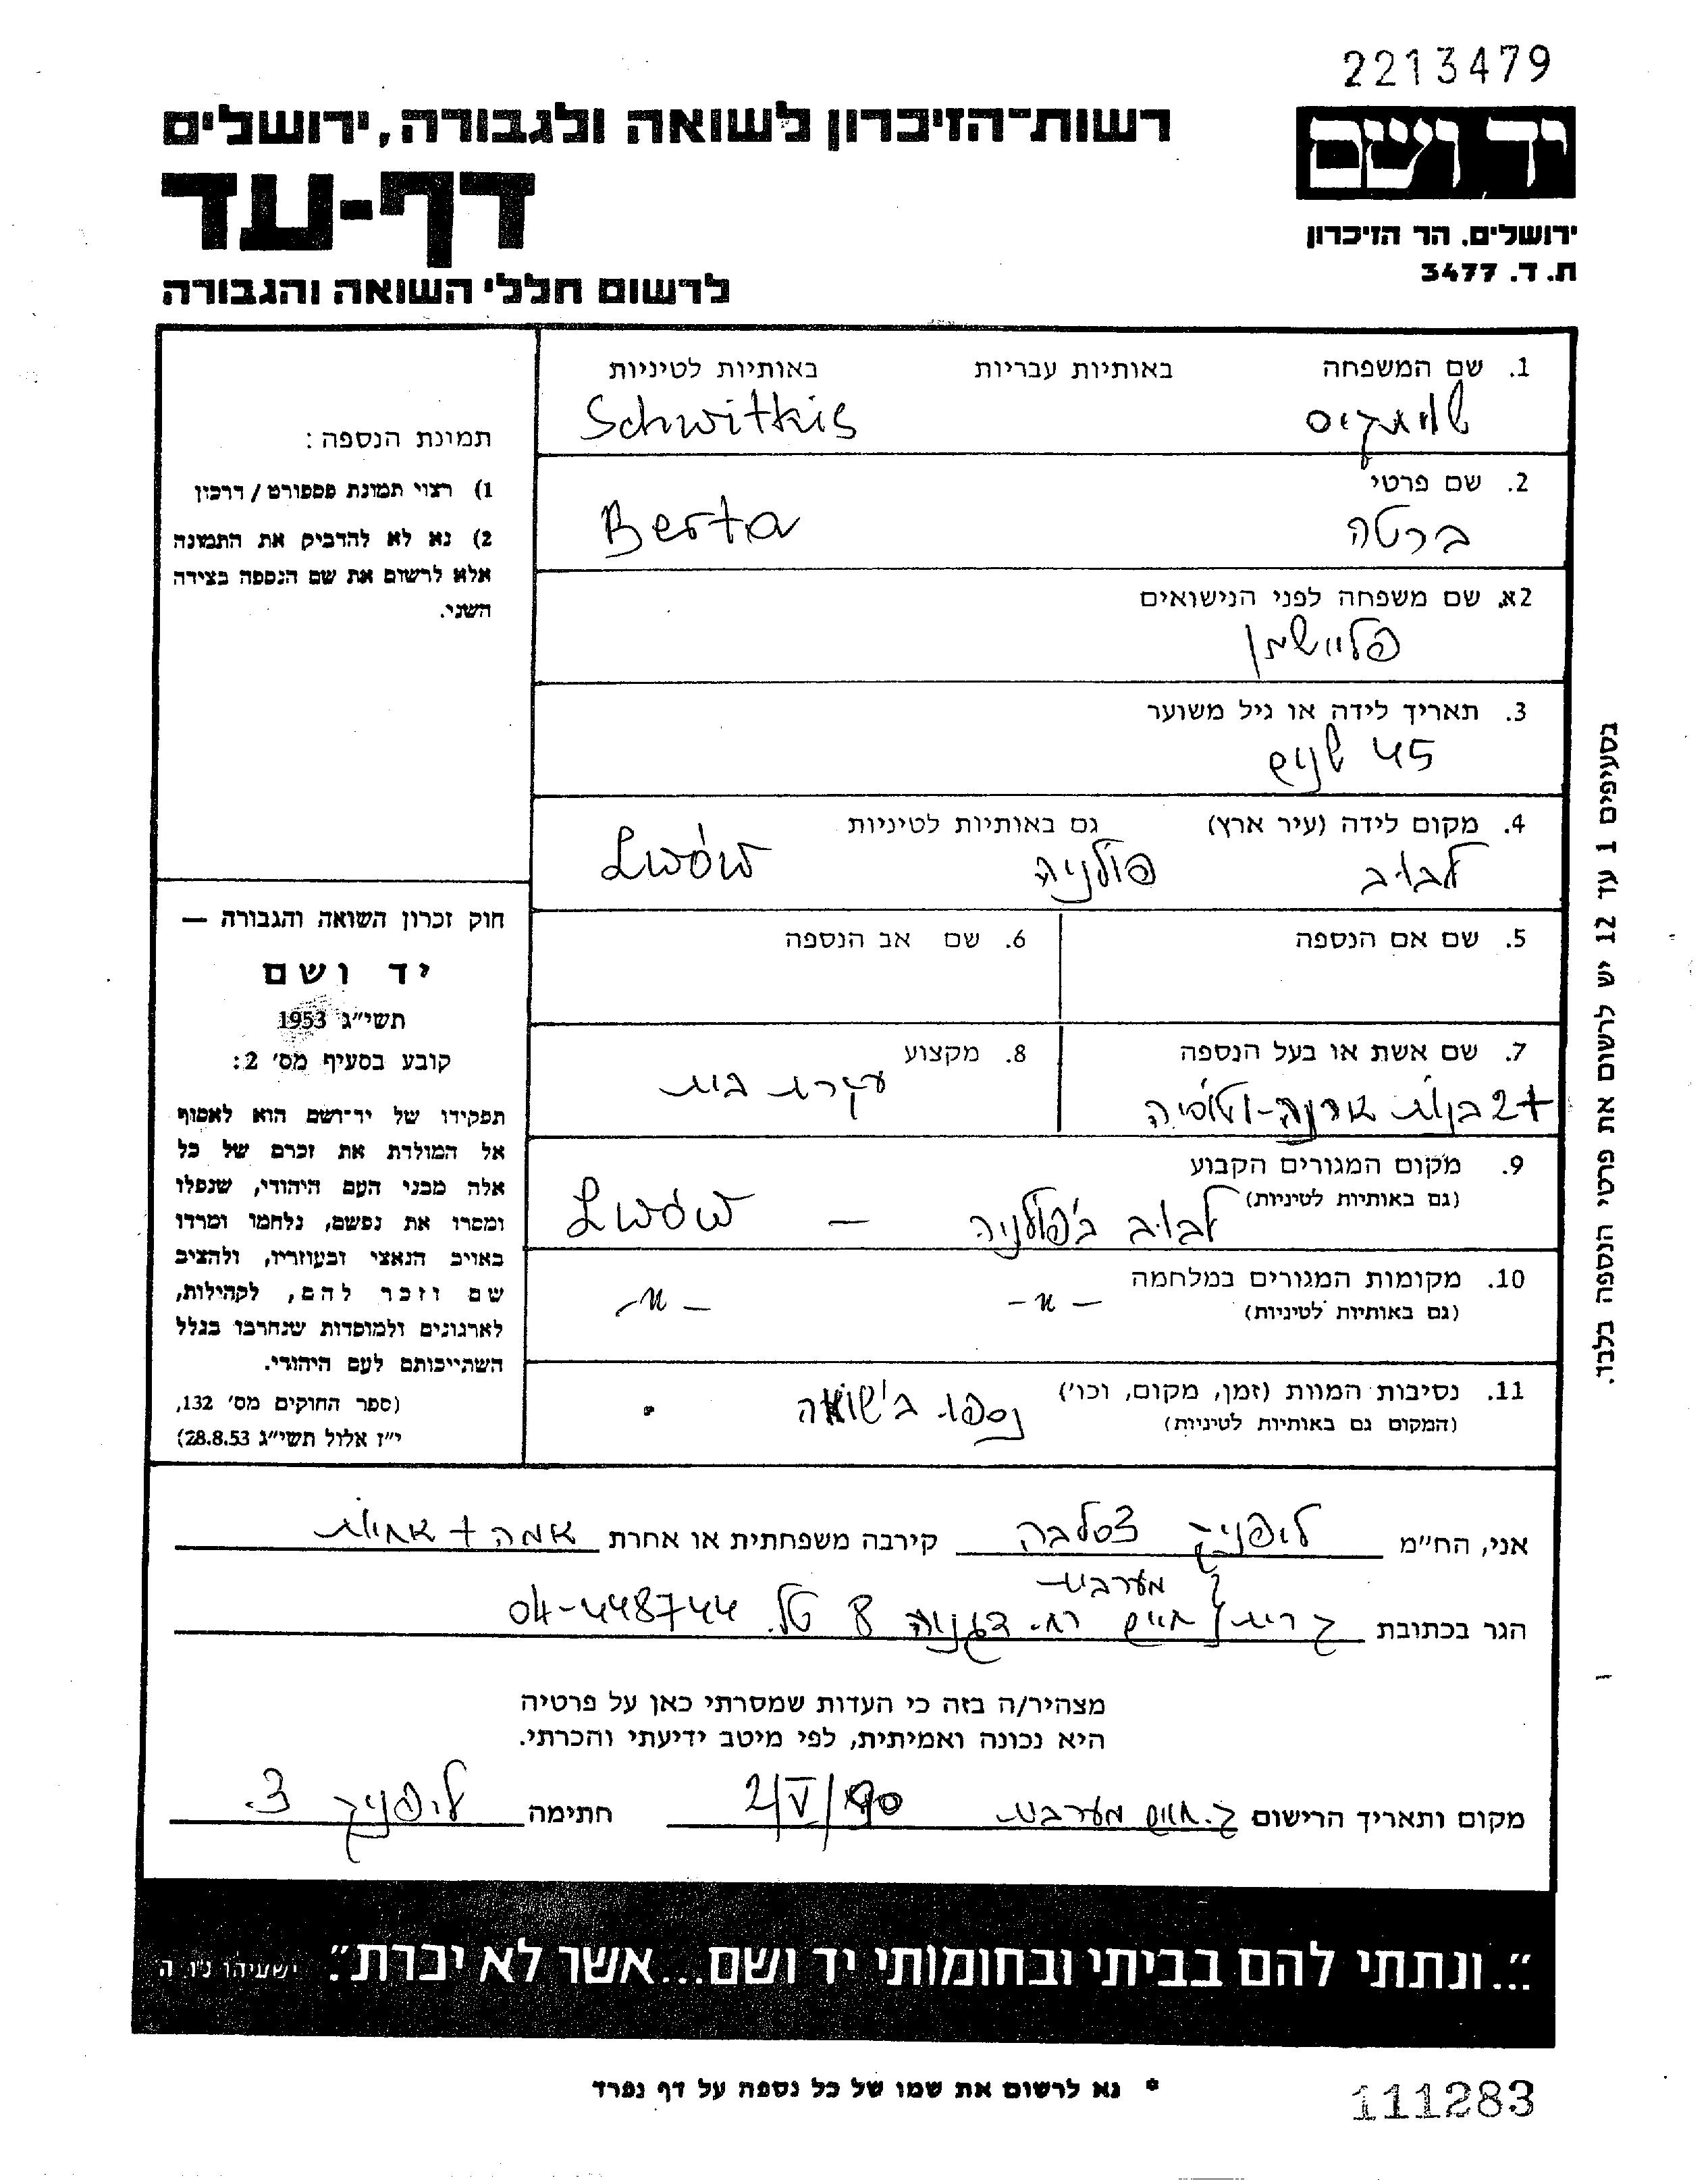 2213479
רשות־הזיכרון לשואה ולגבורה, ירושלים
יד ושם
דף-עד
ירושלים, הר הזיכרון
ת. ד. 3477
לרשום חללי השואה והגבורה
1. שם המשפחה באותיות עבריות באותיות לטיניות
Schwitkis
2. שם פרטי
ברטה Berta
2א. שם משפחה לפני הנישואים
פליישמן
3. תאריך לידה או גיל משוער
45 שנים
4. מקום לידה (עיר ארץ) גם באותיות לטיניות
לבוב פולניה Lwów
5. שם אם הנספה 6. שם אב הנספה
7. שם אשת או בעל הנספה 8. מקצוע
+2 בנות עקרת בית
9. מקום המגורים הקבוע
(גם באותיות לטיניות)
לבוב ב'פולניה — Lwów
10. מקומות המגורים במלחמה
(גם באותיות לטיניות)
— " — — " —
11. נסיבות המוות (זמן, מקום, וכו')
(המקום גם באותיות לטיניות)
נספו ב'שואה
תמונת הנספה:
1) רצוי תמונת פספורט / דרכון
2) נא לא להדביק את התמונה
אלא לרשום את שם הנספה בצידה
השני.
חוק זכרון השואה והגבורה —
יד ושם
תשי״ג 1953
קובע בסעיף מס׳ 2:
תפקידו של יד־ושם הוא לאסוף
אל המולדת את זכרם של כל
אלה מבני העם היהודי, שנפלו
ומסרו את נפשם, נלחמו ומרדו
באויב הנאצי ובעוזריו, ולהציב
שם וזכר להם, לקהילות,
לארגונים ולמוסדות שנחרבו בגלל
השתייכותם לעם היהודי.
(ספר החוקים מס׳ 132,
י״ז אלול תשי״ג 28.8.53)
בסעיפים 1 עד 12 יש לרשום את פרטי הנספה בלבד.
אני, הח״מ ליפניק צסלבה קירבה משפחתית או אחרת אמה + אחיות
מערבית
הגר בכתובת קרית חיים רח. דגניה 8 טל. 04-448744
מצהיר/ה בזה כי העדות שמסרתי כאן על פרטיה
היא נכונה ואמיתית, לפי מיטב ידיעתי והכרתי.
מקום ותאריך הרישום ק. חיים מערבית 2/V/90 חתימה ליפניק צ.
״...ונתתי להם בביתי ובחומותי יד ושם...אשר לא יכרת״. ישעיהו נו ה
* נא לרשום את שמו של כל נספה על דף נפרד
111283